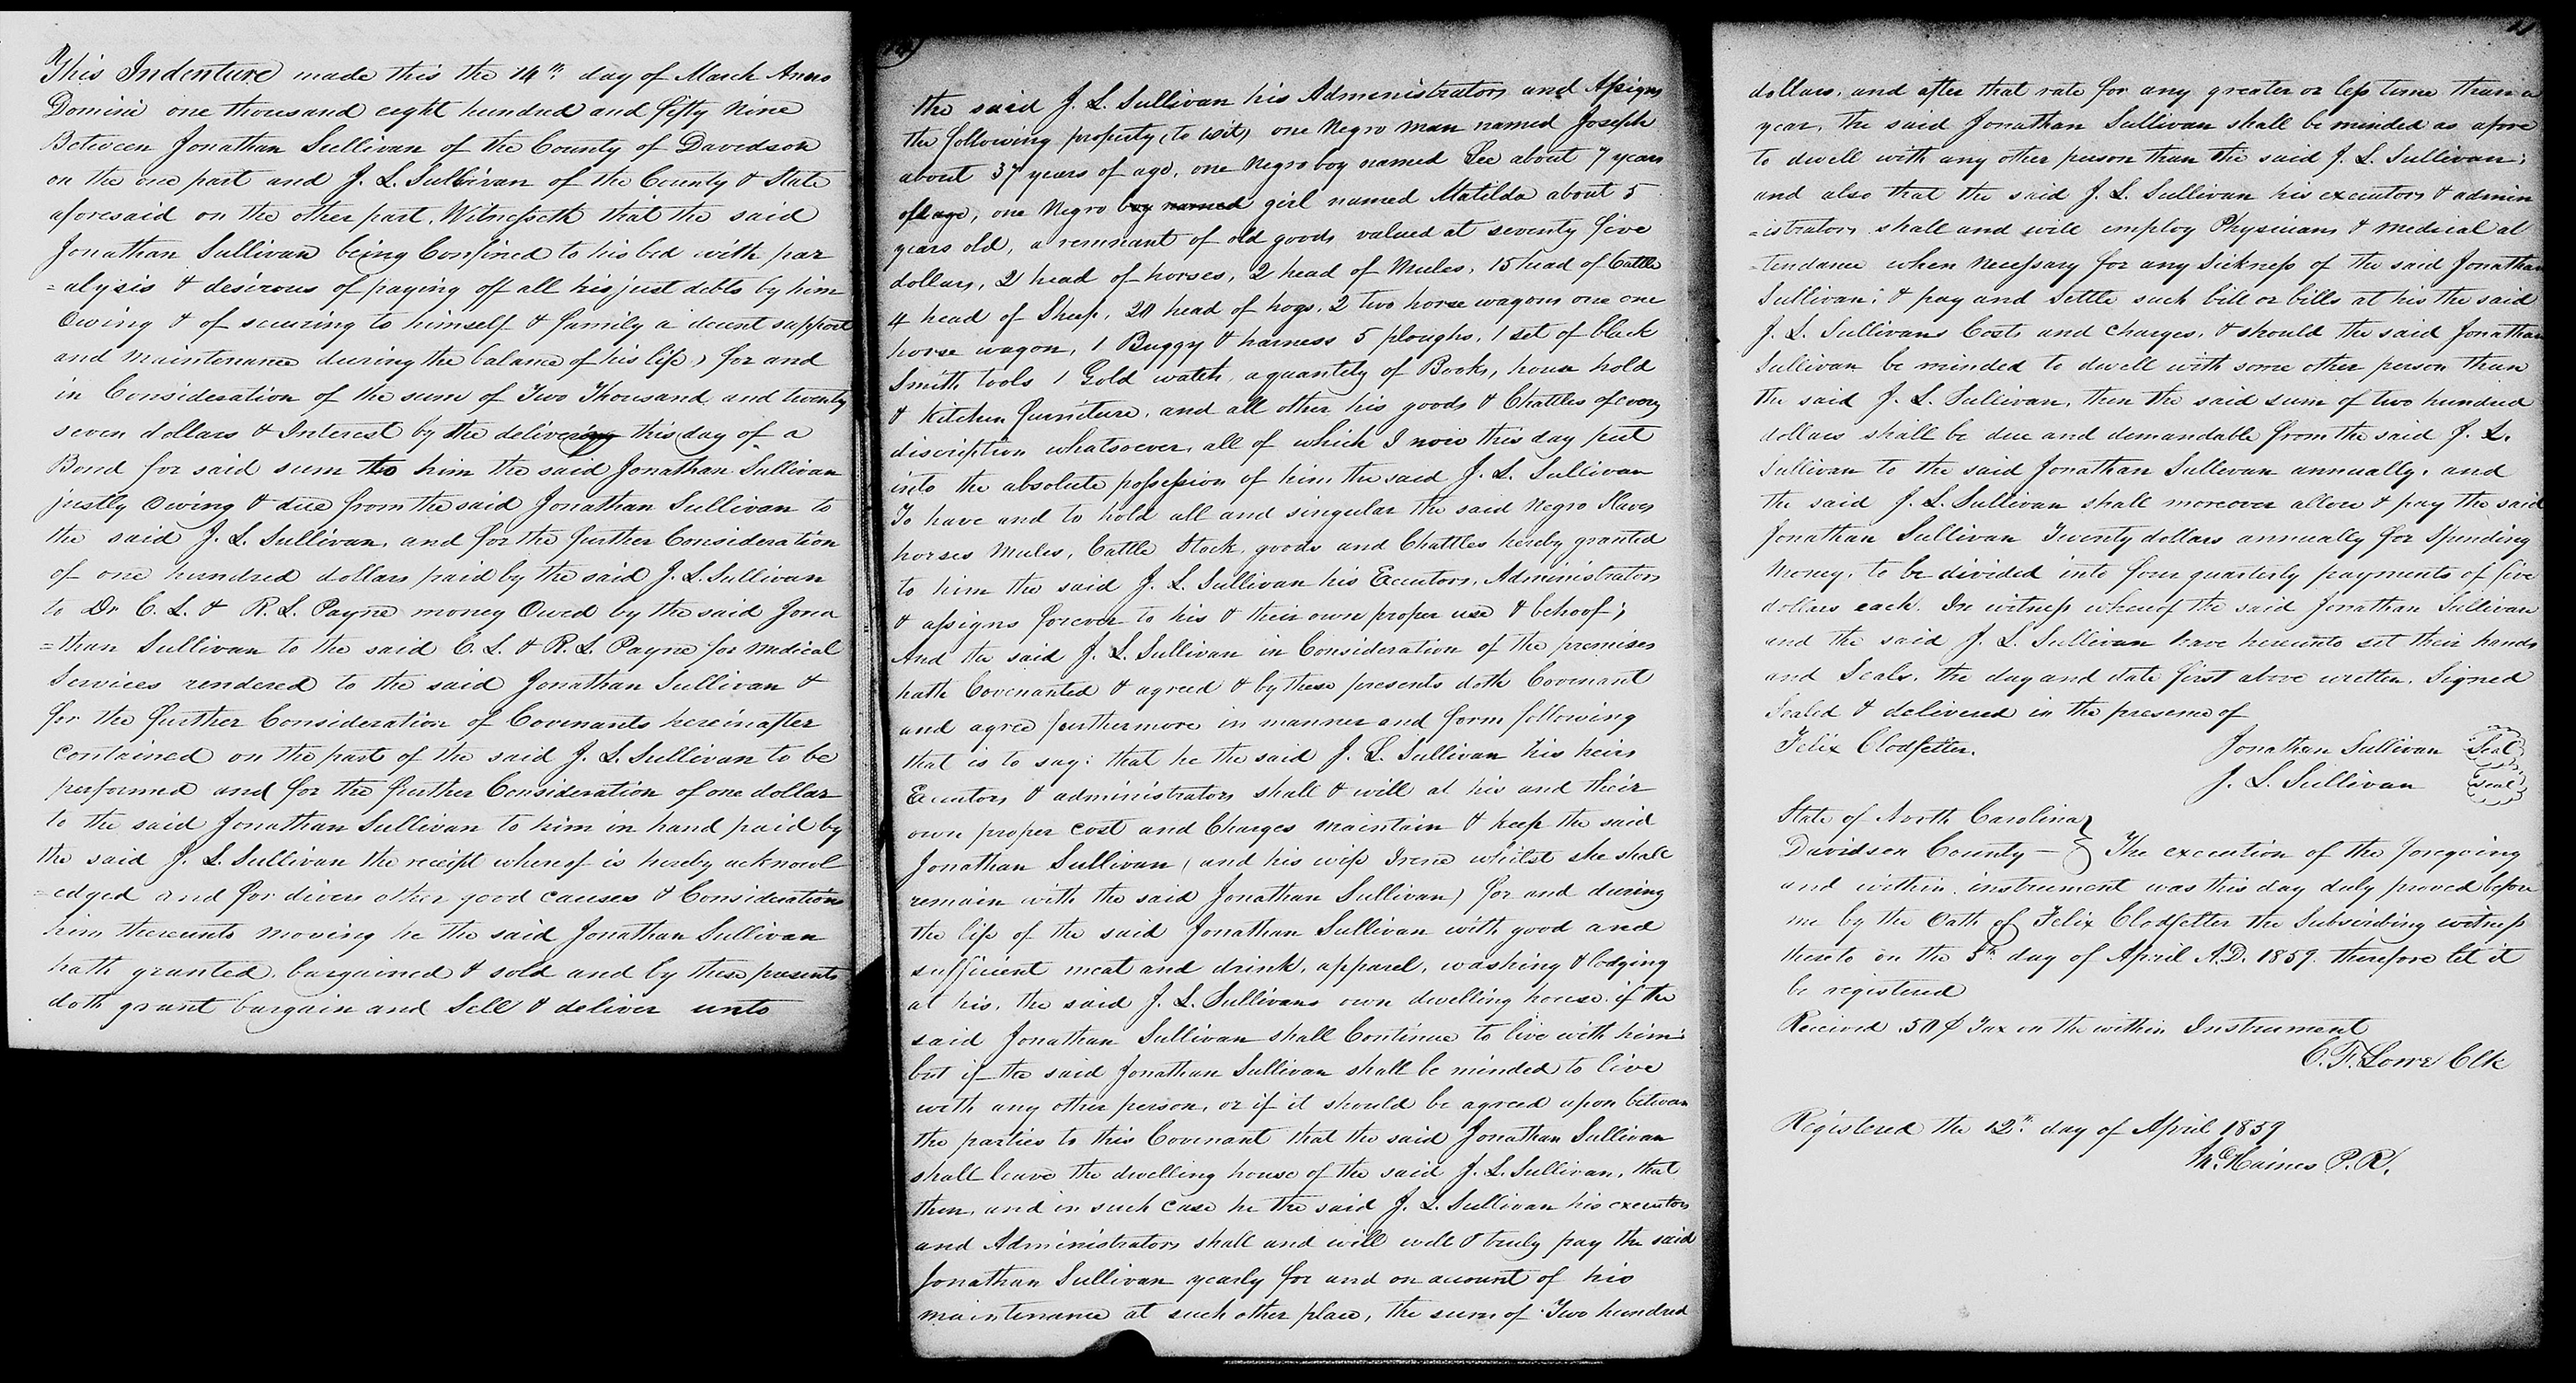 This Indenture made this the 14th day of March Anno
Domini one thousand eight hundred and fifty nine
Between Jonathan Sullivan of the County of Davidson
on the one part and J. L. Sullivan of the County & State
aforesaid on the other part, Witnesseth that the said
Jonathan Sullivan being Confined to his bed with par
=alysis & desirous of paying off all his just debts by him
Owing & of securing to himself & family a decent support
and maintenance during the balance of his life, for and
in Consideration of the sum of Two Thousand and twenty
seven dollars & Interest by the delivering this day of a
Bond for said sum to him the said Jonathan Sullivan
justly Owing & due from the said Jonathan Sullivan to
the said J. L. Sullivan, and for the further Consideration
of one hundred dollars paid by the said J. L. Sullivan
to Dr C. L. & R. L. Payne money Owed by the said Jona
=than Sullivan to the said C. L. & R. L. Payne for medical
Services rendered to the said Jonathan Sullivan &
for the further Consideration of Covenants hereinafter
contained on the part of the said J. L. Sullivan to be
performed and for the further Consideration of one dollar
to the said Jonathan Sullivan to him in hand paid by
the said J. L. Sullivan the receipt whereof is hereby acknowl
=edged and for divers other good causes & Considerations
him thereunto moving he the said Jonathan Sullivan
hath granted, bargained & sold and by these presents
doth grant bargain and Sell & deliver unto
the said J. L. Sullivan his Administrators and Assigns
the following property (to wit) one Negro man named Joseph
about 37 years of age, one Negro boy named Lee about 7 years
of age, one Negro boy named girl named Matilda about 5
years old, a remnant of old goods valued at seventy five
dollars, 2 head of horses, 2 head of Mules, 15 head of Cattle
4 head of Sheep, 20 head of hogs, 2 two horse wagons one one
horse wagon, 1 Buggy & harness 5 ploughs, 1 set of black
Smith tools 1 Gold watch, a quantity of Books, house hold
& Kitchen furniture, and all other his goods & Chattles of every
discription whatsoever, all of which I now this day put
into the absolute possession of him the said J. L. Sullivan
To have and to hold all and singular the said Negro Slaves
horses Mules, Cattle Stock, goods and Chattles hereby granted
to him the said J. L. Sullivan his Excutors, Administrators
& assigns forever to his & their own proper use & behoof;
And the said J. L. Sullivan in Consideration of the premises
hath Covenanted & agreed & by these presents doth Covenant
and agree furthermore in manner and form following
that is to say: that he the said J. L. Sullivan his heirs
Excutors & administrators shall & will at his and their
own proper cost and Charges maintain & keep the said
Jonathan Sullivan (and his wife Irene whilst she shall
remain with the said Jonathan Sullivan) for and during
the life of the said Jonathan Sullivan with good and
sufficient meat and drink, apparel, washing & lodging
at his, the said J. L. Sullivans own dwelling house if the
said Jonathan Sullivan shall Continue to live with him:
but if the said Jonathan Sullivan shall be minded to live
with any other person, or if it should be agreed upon between
the parties to this Covenant that the said Jonathan Sullivan
shall leave the dwelling house of the said J. L. Sullivan, that
then, and in such case he the said J. L. Sullivan his executors
and Administrators shall and will well & truly pay the said
Jonathan Sullivan yearly for and on account of his
maintenance at such other place, the sum of Two hundred
dollars, and after that rate for any greater or less time than a
year, the said Jonathan Sullivan shall be minded as afore
to dwell with any other person than the said J. L. Sullivan;
and also that the said J. L. Sullivan his executors & admin
=istrators shall and will employ Physicians & medical at
=tendance when necessary for any Sickness of the said Jonathan
Sullivan; & pay and settle such bill or bills at his the said
J. L. Sullivans Costs and charges, & should the said Jonathan
Sullivan be minded to dwell with some other person than
the said J. L. Sullivan, then the said sum of two hundred
dollars shall be due and demandable from the said J. L.
Sullivan to the said Jonathan Sullivan annually, and
the said J. L. Sullivan shall moreover allow & pay the said
Jonathan Sullivan Twenty dollars annually for Spending
Money, to be divided into four quarterly payments of five
dollars each. In witness whereof the said Jonathan Sullivan
and the said J. L. Sullivan have hereunto set their hands
and Seals, the day and date first above written. Signed
Sealed & delivered in the presence of
Felix Clodfelter. Jonathan Sullivan Seal
J. L. Sullivan Seal
State of North Carolina
Davidson County — The execution of the foregoing
and within instrument was this day duly proved before
me by the Oath of Felix Clodfelter the Subscribing witness
thereto on the 5th day of April A.D. 1859. therefore let it
be registered
Received .50 ¢ Tax on the within Instrument
C. F. Lowe Clk
Registered the 12th day of April 1859
Haines P. R.